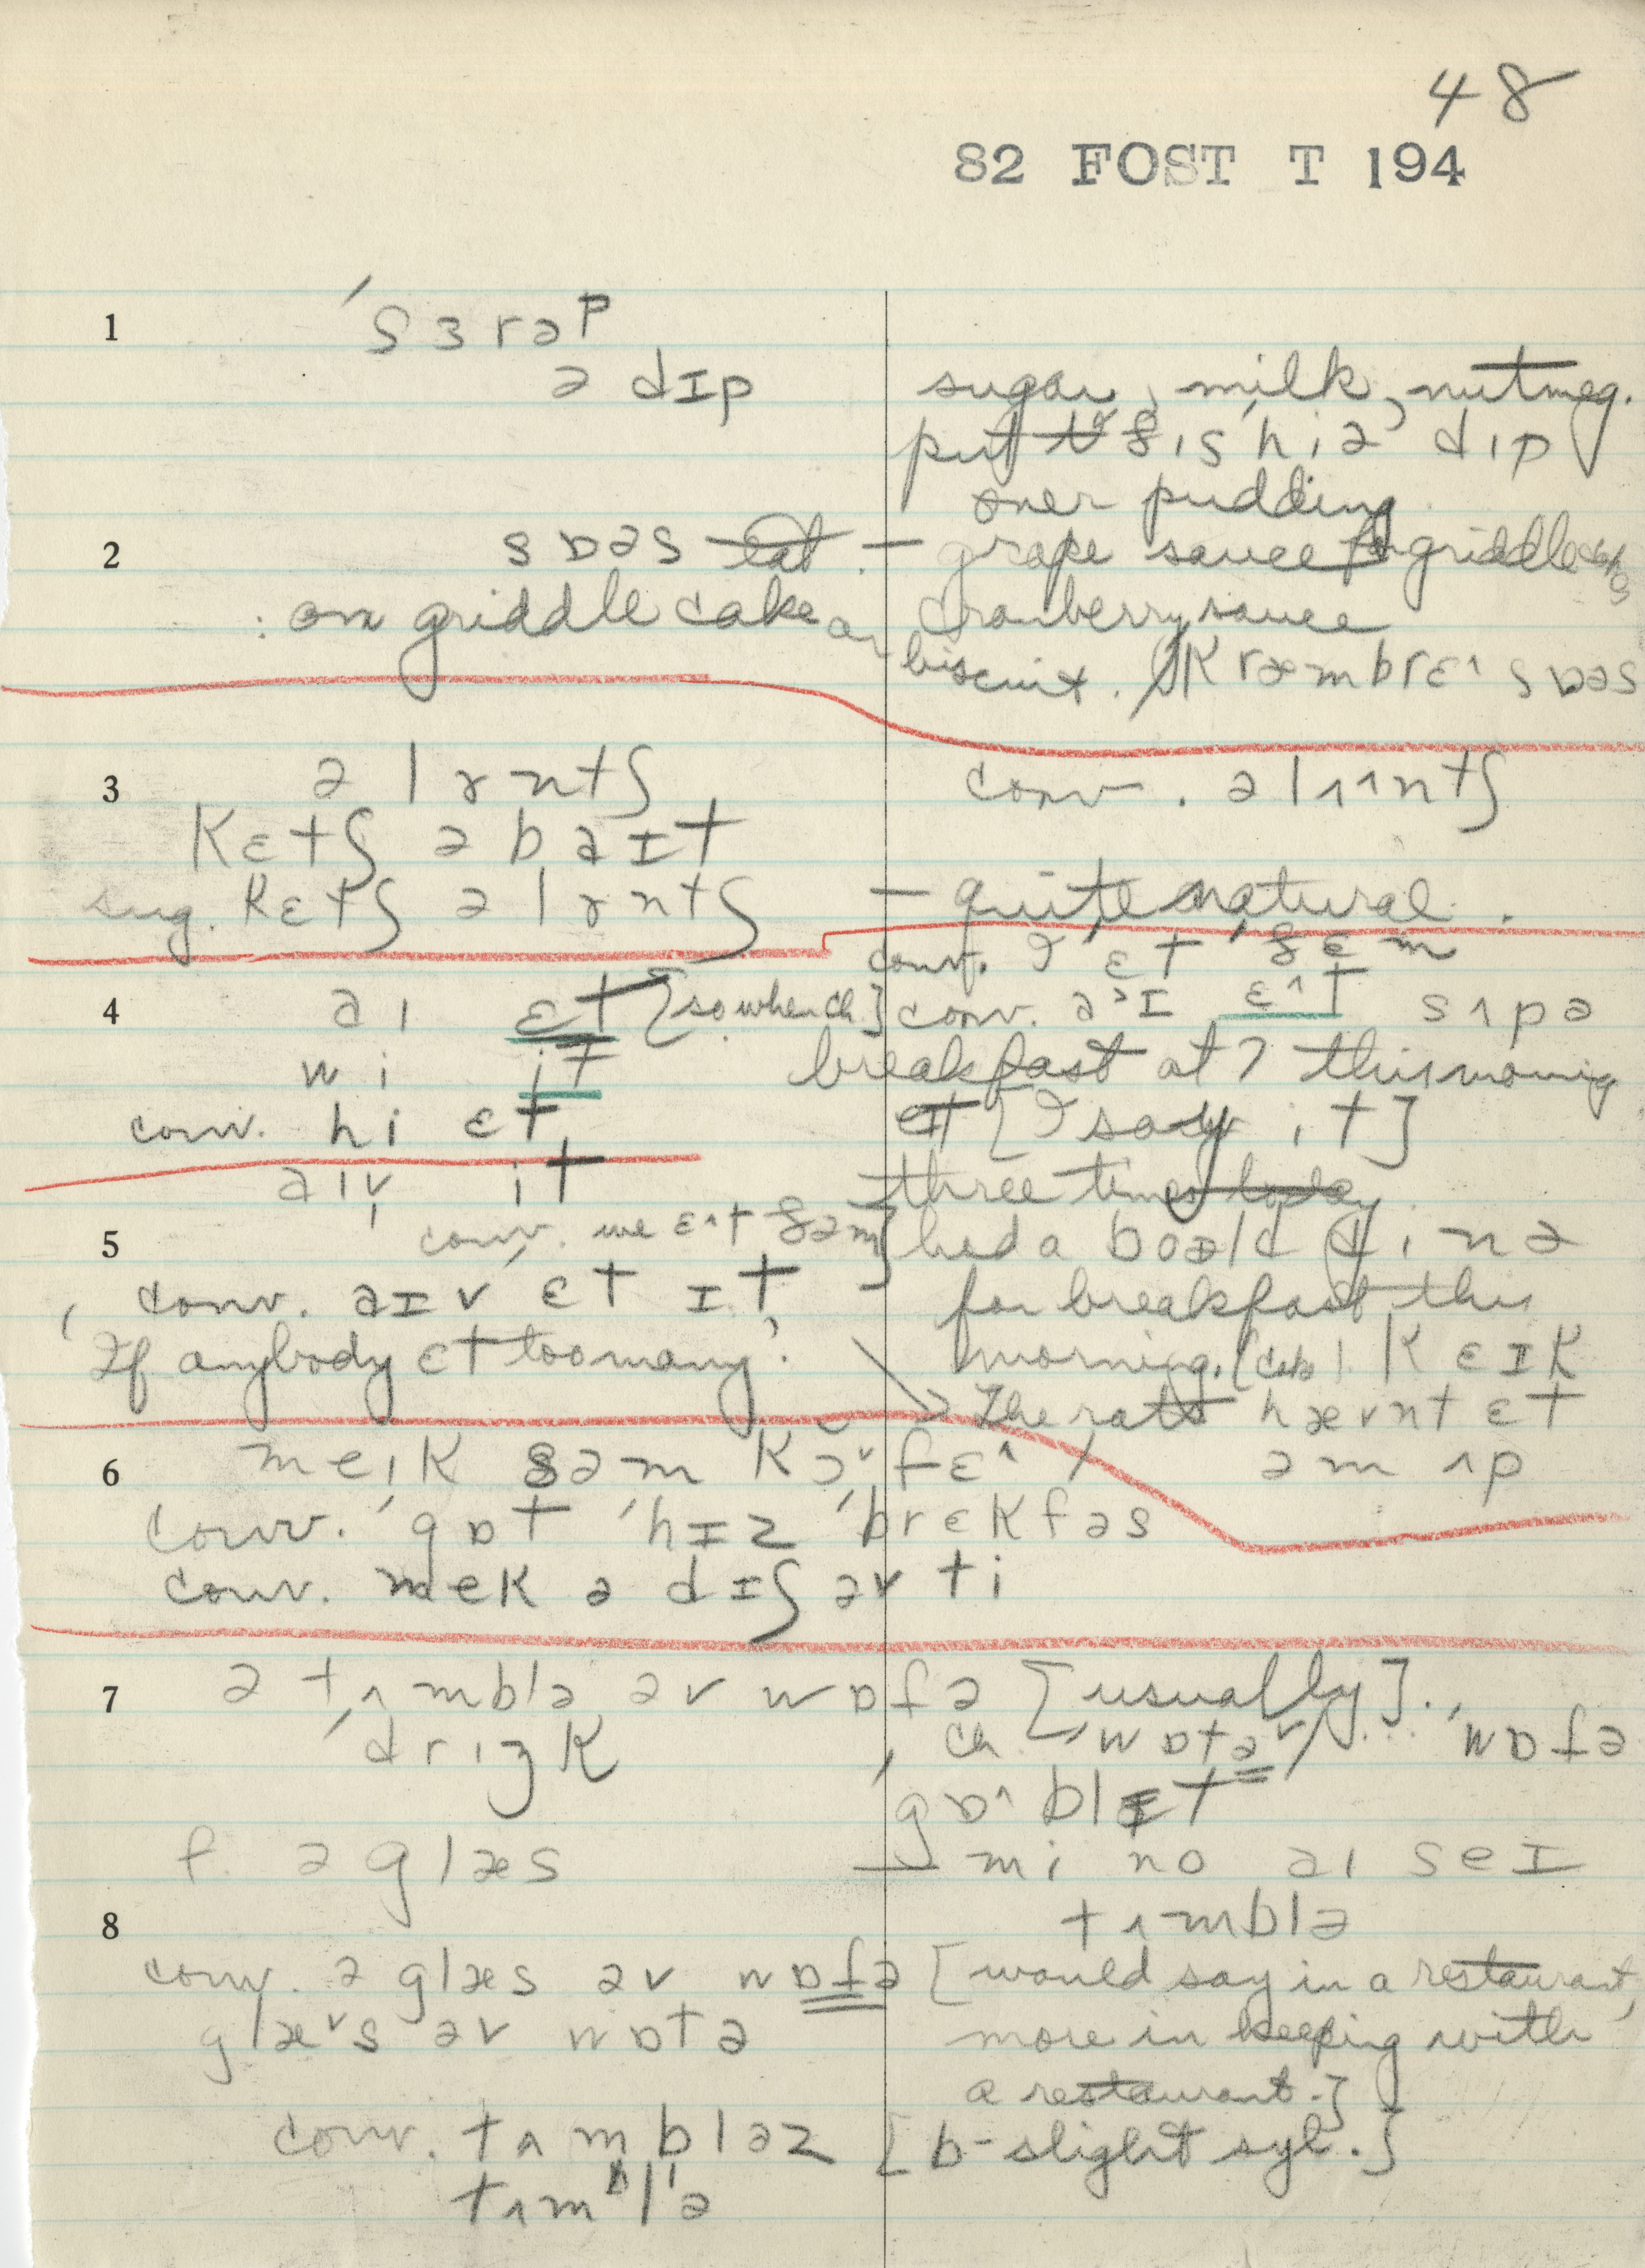 48
82 FOST T 194
1
ˈsɜrəp
ə dɪp
sugar, milk, nutmeg.
put ðis hiə dip
over pudding
2
sɒəs — grape sauce for griddle cakes
: on griddle cake or cranberry sauce
biscuit. kræmbrɛ^ sɒəs
3
ə lɤntʃ
conv. ə lɪ^ntʃ
kɛtʃ ə baɪt
sug. kɛtʃ ə lɤntʃ — quite natural.
conv. I ˈɛt ˈðɛm
4
aɪ ɛt [so when ch.] conv. a>ɪ ɛ^t sʌpə
wi it breakfast at 7 this morning
conv. hi ɛt [I say it]
aɪv it three times
5
conv. we ɛ^t ðəm] had a boəld dinə
conv. aɪv ɛt ɪt for breakfast this
If anybody ɛt too many? morning. kɛɪk
→ The rats hævnt ɛt
əm ʌp
6
meɪk səm kɔˇfɛ^
conv. ˈgɒt ˈhɪz ˈbrɛkfəs
conv. mek ə dɪʃ əv ti
7
ə tʌmblə əv wɒɾə [usually].
ˈdriŋk
ch ˈwɒtəˇ/ ... ˈwɒɾə
ˈgɒ^blɪt
f. ə glæs — mi no aɪ seɪ
tʌmblə
8
conv. ə glæs əv wɒɾə [would say in a restaurant,
glæˇs əv wɒtə more in keeping with
a restaurant.]
conv. tʌmbləz [b-slight syl.]
tʌmᵇlˈə